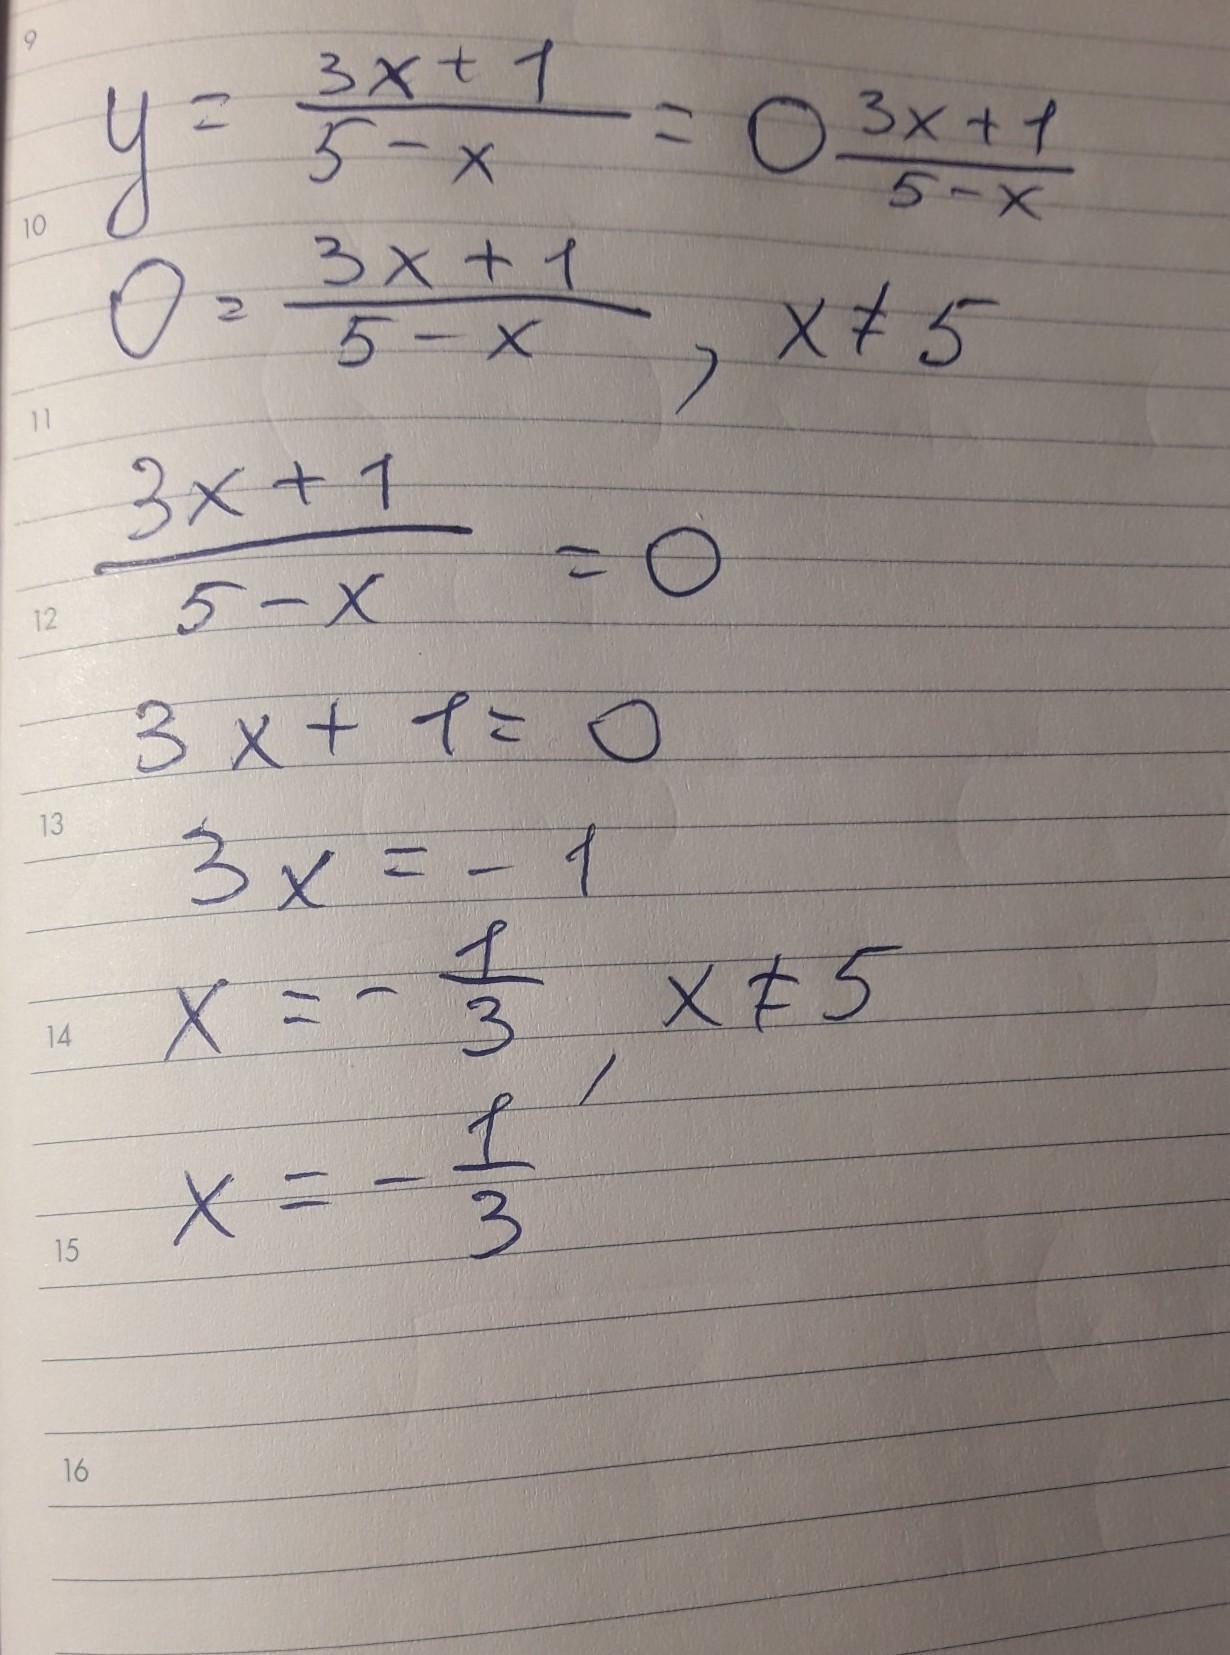 9
y = (3x + 1)/(5 - x) = 0 (3x + 1)/(5 - x)
10
0 = (3x + 1)/(5 - x), x ≠ 5
11
(3x + 1)/(5 - x) = 0
12
3x + 1 = 0
13
3x = - 1
x = - 1/3, x ≠ 5
14
x = - 1/3
15
16